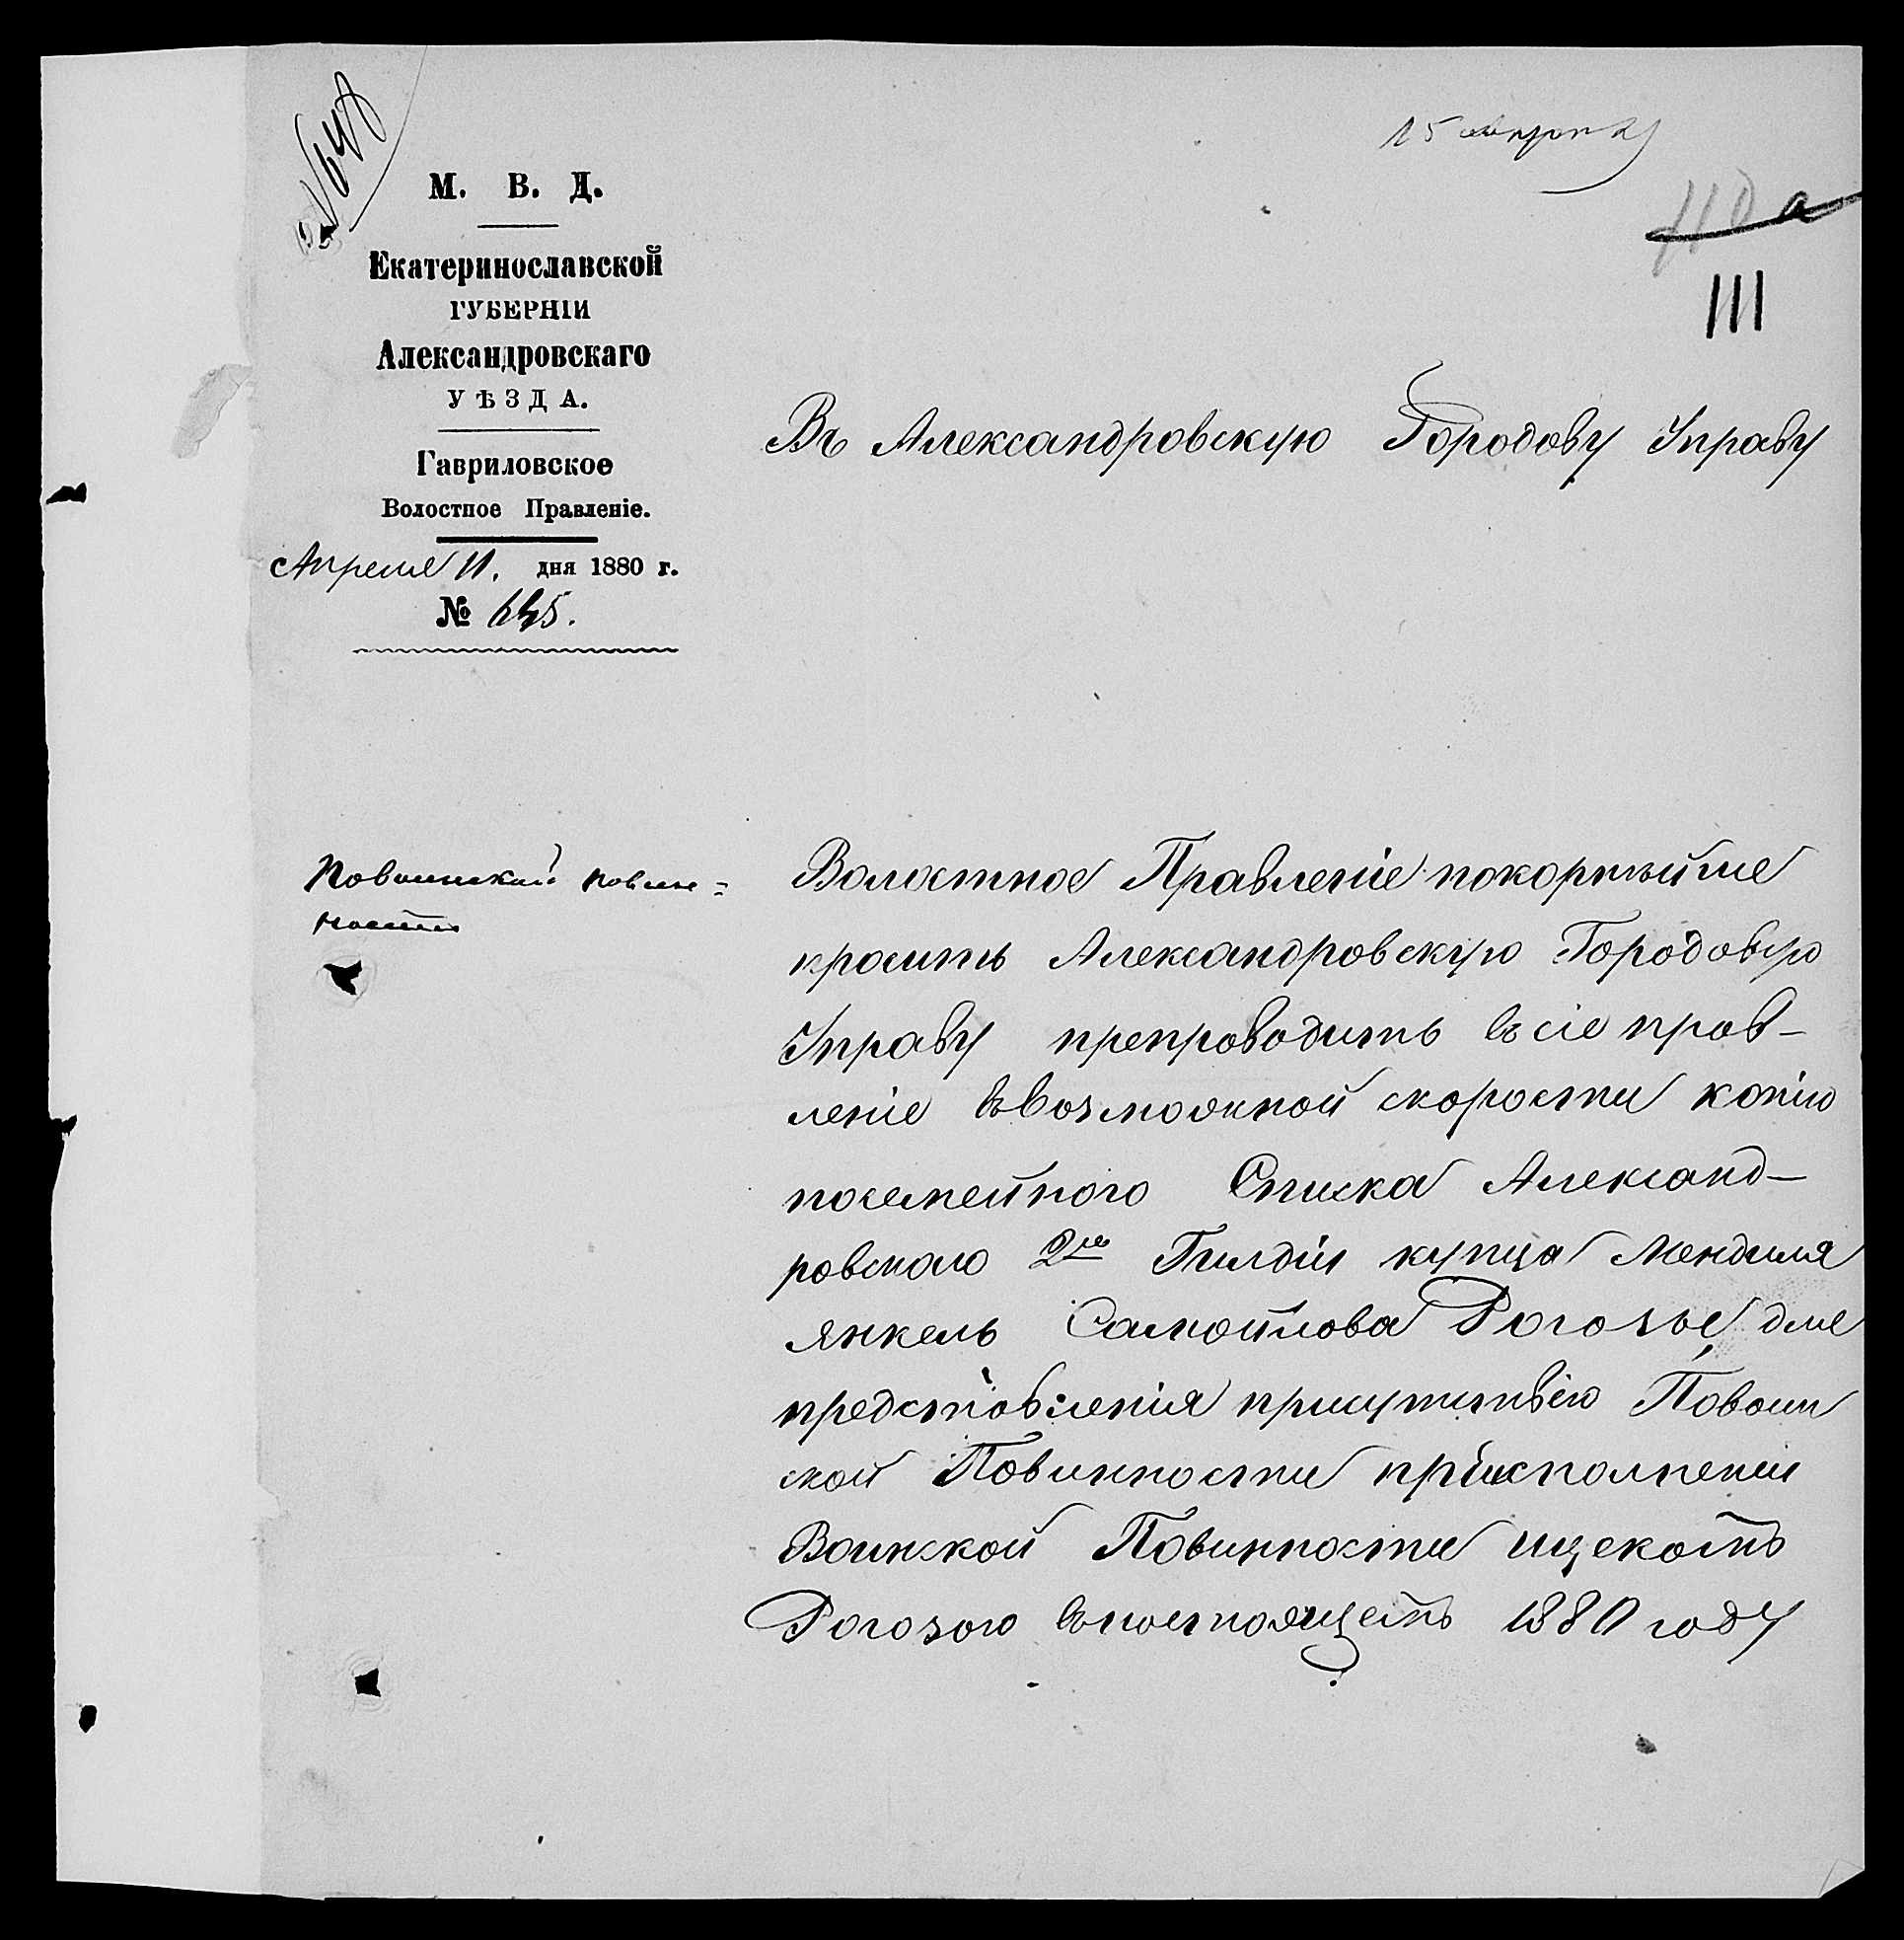 15 апреля
110 а
111
М. В. Д.
Екатеринославской
ГУБЕРНІИ
Александровскаго
УѢЗДА.
Гавриловское
Волостное Правленіе.
Апреля 11. дня 1880 г.
№ 645.
Въ Александровскую Городову Управу
Повоинской повин=
ности
Волостное Правленіе покорнѣйше
проситъ Александровскую Городовую
Управу препроводить въ сіе прав-
леніе ввозможной скорости копію
посемейного Списка Александ-
ровского 2й Гилдіи купца Мендиля
янкель Самойлова Рогозы, для
представленія присутствію Повоин
ской Повинности приисполнении
Воинской Повинности
Рогозою внастоящемъ 1880 году